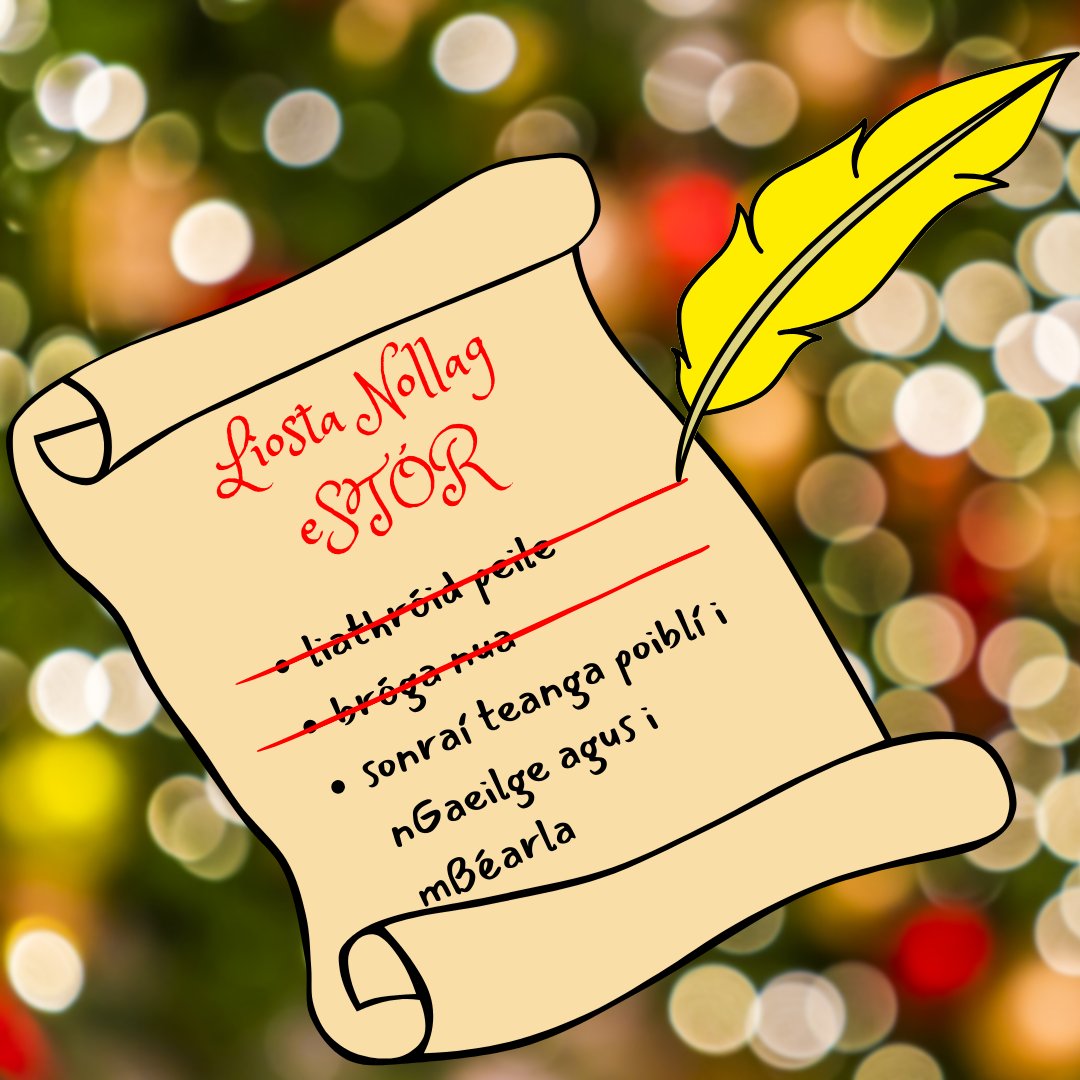 Liosta Nollag
eSTÓR
• liathróid peile
• bróga nua
• sonraí teanga poiblí i
nGaeilge agus i
mBéarla